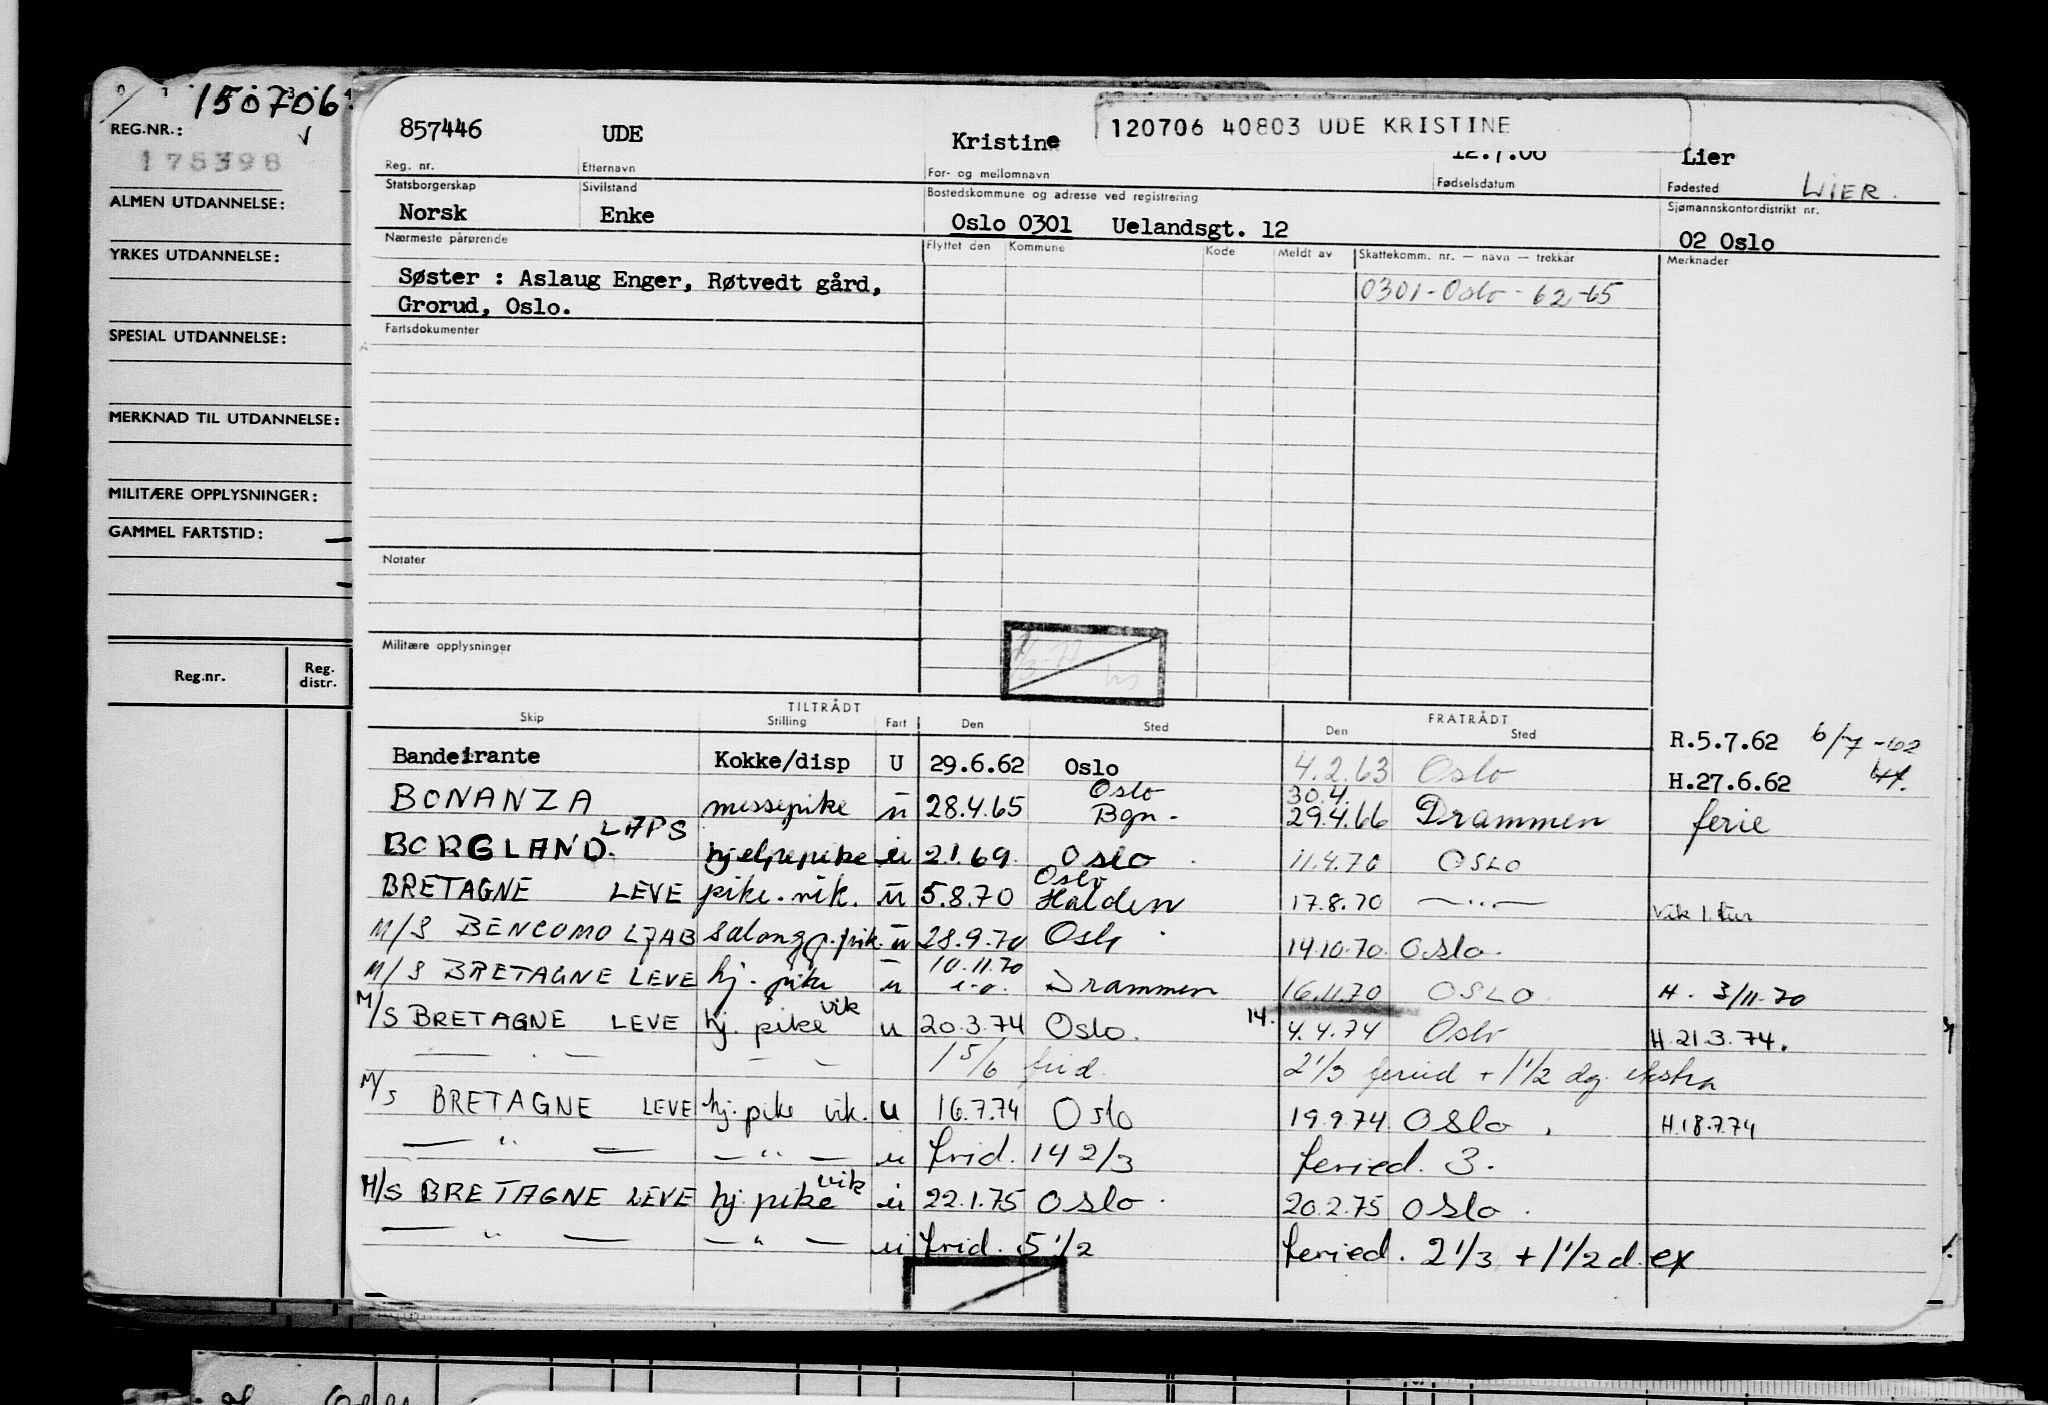 150706
REG.NR.:
175398
ALMEN UTDANNELSE:
YRKES UTDANNELSE:
SPESIAL UTDANNELSE:
MERKNAD TIL UTDANNELSE:
MILITÆRE OPPLYSNINGER:
GAMMEL FARTSTID:
Reg.nr. Reg. distr.
120706 40803 UDE KRISTINE
857446 UDE Kristine 12.7.06 Lier
Reg. nr. Etternavn For- og mellomnavn Fødselsdatum Fødested LIER.
Statsborgerskap Sivilstand Bostedskommune og adresse ved registrering Sjømannskontordistrikt nr.
Norsk Enke Oslo 0301 Uelandsgt. 12 02 Oslo
Nærmeste pårørende Flyttet den Kommune Kode Meldt av Skattekomm. nr. — navn — trekkår Merknader
Søster : Aslaug Enger, Røtvedt gård, 0301-Oslo-62-65
Grorud, Oslo.
Fartsdokumenter
Notater
Militære opplysninger
TILTRÅDT FRATRÅDT
Skip Stilling Fart Den Sted Den Sted
Bandeirante Kokke/disp U 29.6.62 Oslo 4.2.63 Oslo R.5.7.62 6/7-62
H.27.6.62
Oslo 30.4.
BONANZA messepike u 28.4.65 Bgn- 29.4.66 Drammen ferie
BORGLAND. LAPS hjelpepike u 2.1.69. Oslo 11.4.70 OSLO
Oslo
BRETAGNE LEVE pike.vik. u 5.8.70 Halden 17.8.70 —"— Vik 1. tur
M/S BENCOMO LJAB salongp.pik. u 28.9.70 Oslo 14.10.70. Oslo.
10.11.70
M/S BRETAGNE LEVE hj. pike u Drammen 16.11.70 OSLO H. 3/11-70
M/S BRETAGNE LEVE hj. pike vik u 20.3.74 Oslo. 14. 4.4.74 Oslo H.21.3.74.
— " — — " — 1 5/6 frid. 2 1/3 feried + 1 1/2 dg. ekstra
M/S BRETAGNE LEVE hj. pike vik. u 16.7.74 Oslo 19.9.74 Oslo. H.18.7.74
— " — — " — u frid. 14 2/3 feried. 3.
M/S BRETAGNE LEVE hj. pike vik u 22.1.75 Oslo. 20.2.75 Oslo.
— " — — " — u frid. 5 1/2 feried. 2 1/3 + 1 1/2 d. ex